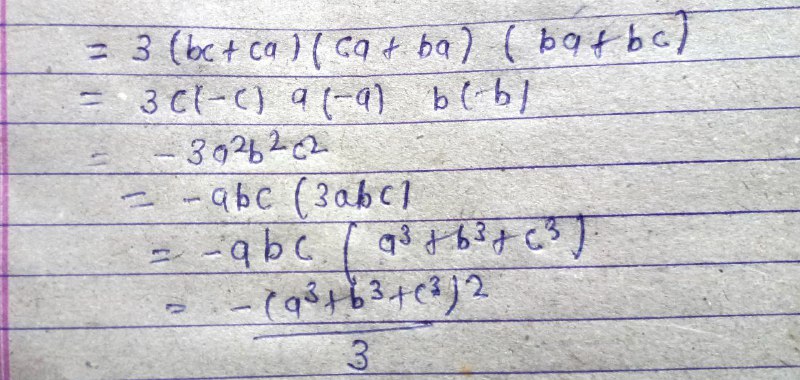 = 3 (bc + ca) (ca + ba) (ba + bc)
= 3c(-c) a(-a) b(-b)
= -3a²b²c²
= -abc (3abc)
= -abc (a³ + b³ + c³)
= -(a³ + b³ + c³)2
3